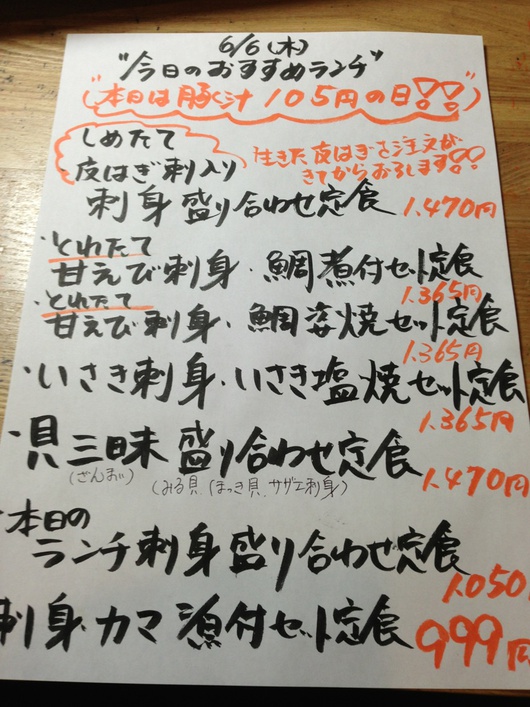 6/6(木)
"今日のおすすめランチ"
"(本日は豚汁105円の日!!)"
しめたて
・皮はぎ刺入り
生きた皮はぎをご注文が
きてからおろします!!
刺身盛り合わせ定食 1.470円
・とれたて
甘えび刺身・鯛煮付セット定食
1.365円
・とれたて
甘えび刺身・鯛姿焼セット定食
1.365円
・いさき刺身・いさき塩焼セット定食
1.365円
・貝三昧盛り合わせ定食
1.470円
(ざんまい) (みる貝、ほっき貝、サザエ刺身)
・本日の
ランチ刺身盛り合わせ定食
1.050円
刺身・カマ煮付セット定食 999円